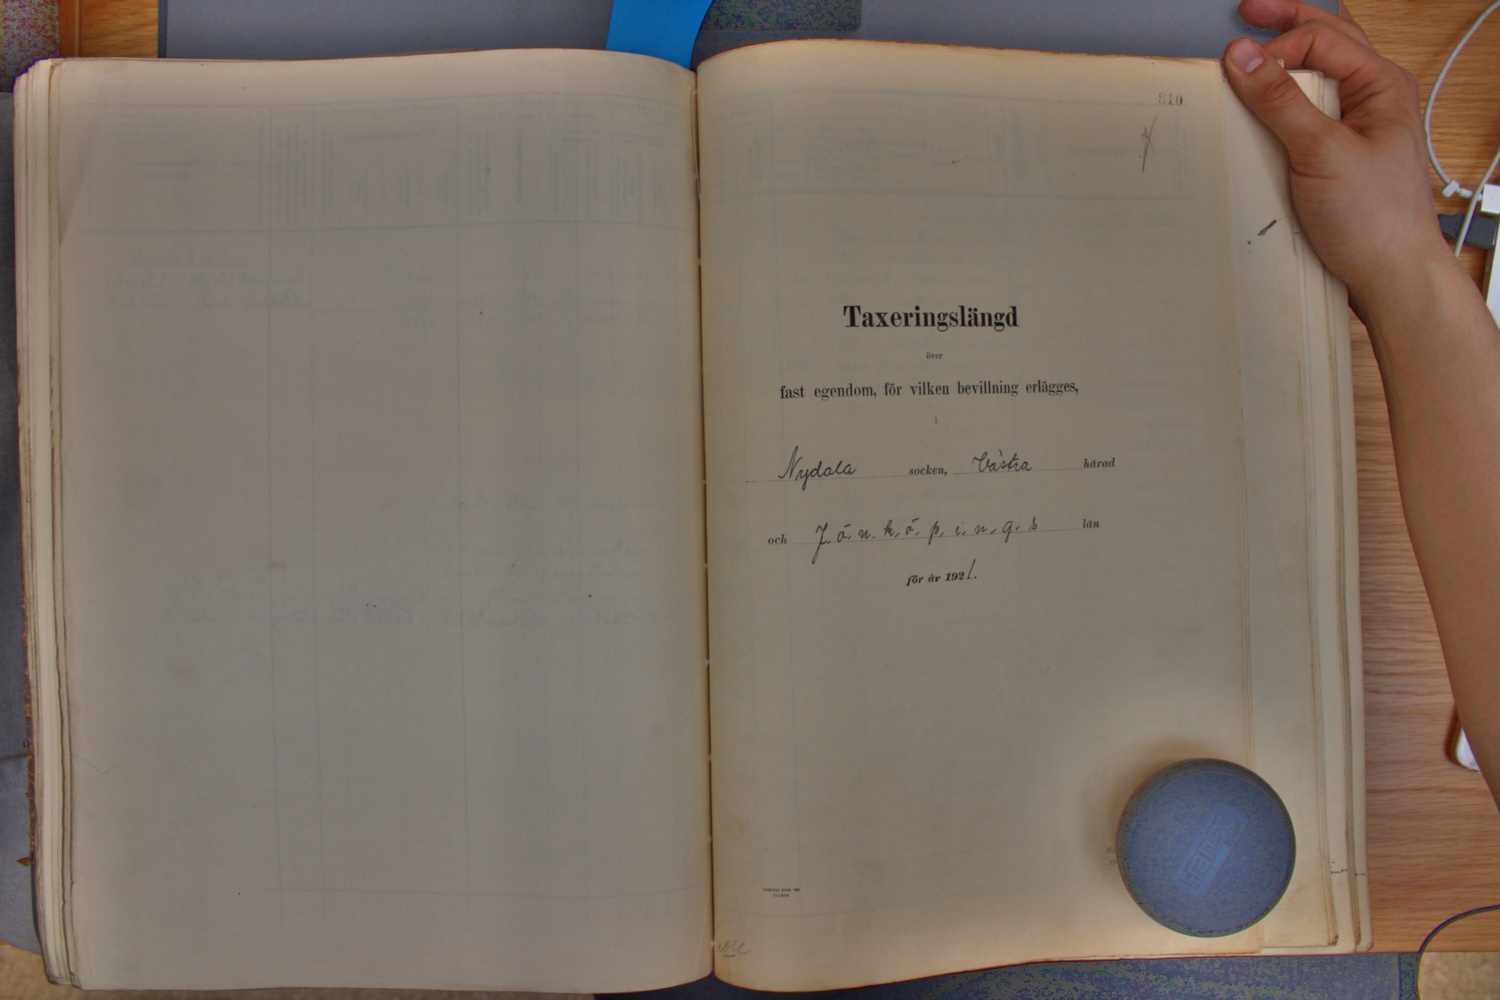 810
Taxeringslängd
över
fast egendom, för vilken bevillning erlägges,
i
Nydala socken, Västra härad
och Jönköpings län
för år 1921.